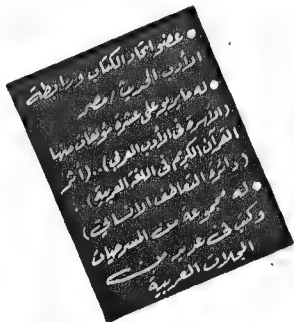 • عضو اتحاد الكتاب ورابطة
الأدب الحديث / مصر
• له ما يربو على عشرة مؤلفات منها
(الأسرة في الأدب العربي) .. (أثر
القرآن الكريم في اللغة العربية) .
(دائرة التعاطف الإنساني)
• له مجموعة من المسرحيات
وكتب في عديد من
المجلات العربية